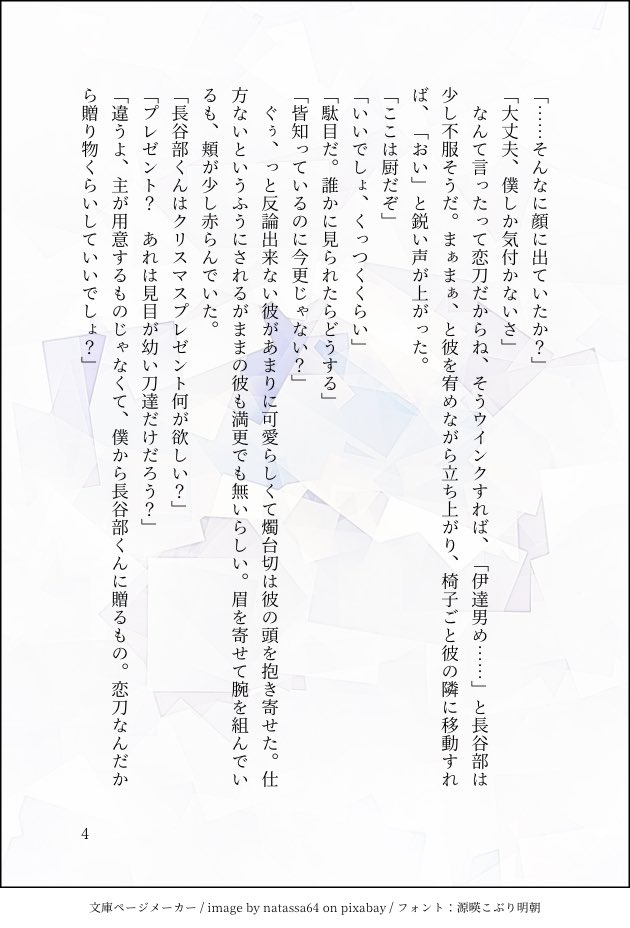 「……そんなに顔に出ていたか？」
「大丈夫、僕しか気付かないさ」
　なんて言ったって恋刀だからね、そうウインクすれば、「伊達男め……」と長谷部は
少し不服そうだ。まぁまぁ、と彼を宥めながら立ち上がり、椅子ごと彼の隣に移動すれ
ば、「おい」と鋭い声が上がった。
「ここは厨だぞ」
「いいでしょ、くっつくくらい」
「駄目だ。誰かに見られたらどうする」
「皆知っているのに今更じゃない？」
　ぐぅ、っと反論出来ない彼があまりに可愛らしくて燭台切は彼の頭を抱き寄せた。仕
方ないというふうにされるがままの彼も満更でも無いらしい。眉を寄せて腕を組んでい
るも、頬が少し赤らんでいた。
「長谷部くんはクリスマスプレゼント何が欲しい？」
「プレゼント？　あれは見目が幼い刀達だけだろう？」
「違うよ、主が用意するものじゃなくて、僕から長谷部くんに贈るもの。恋刀なんだか
ら贈り物くらいしていいでしょ？」
4
文庫ページメーカー / image by natassa64 on pixabay / フォント：源暎こぶり明朝